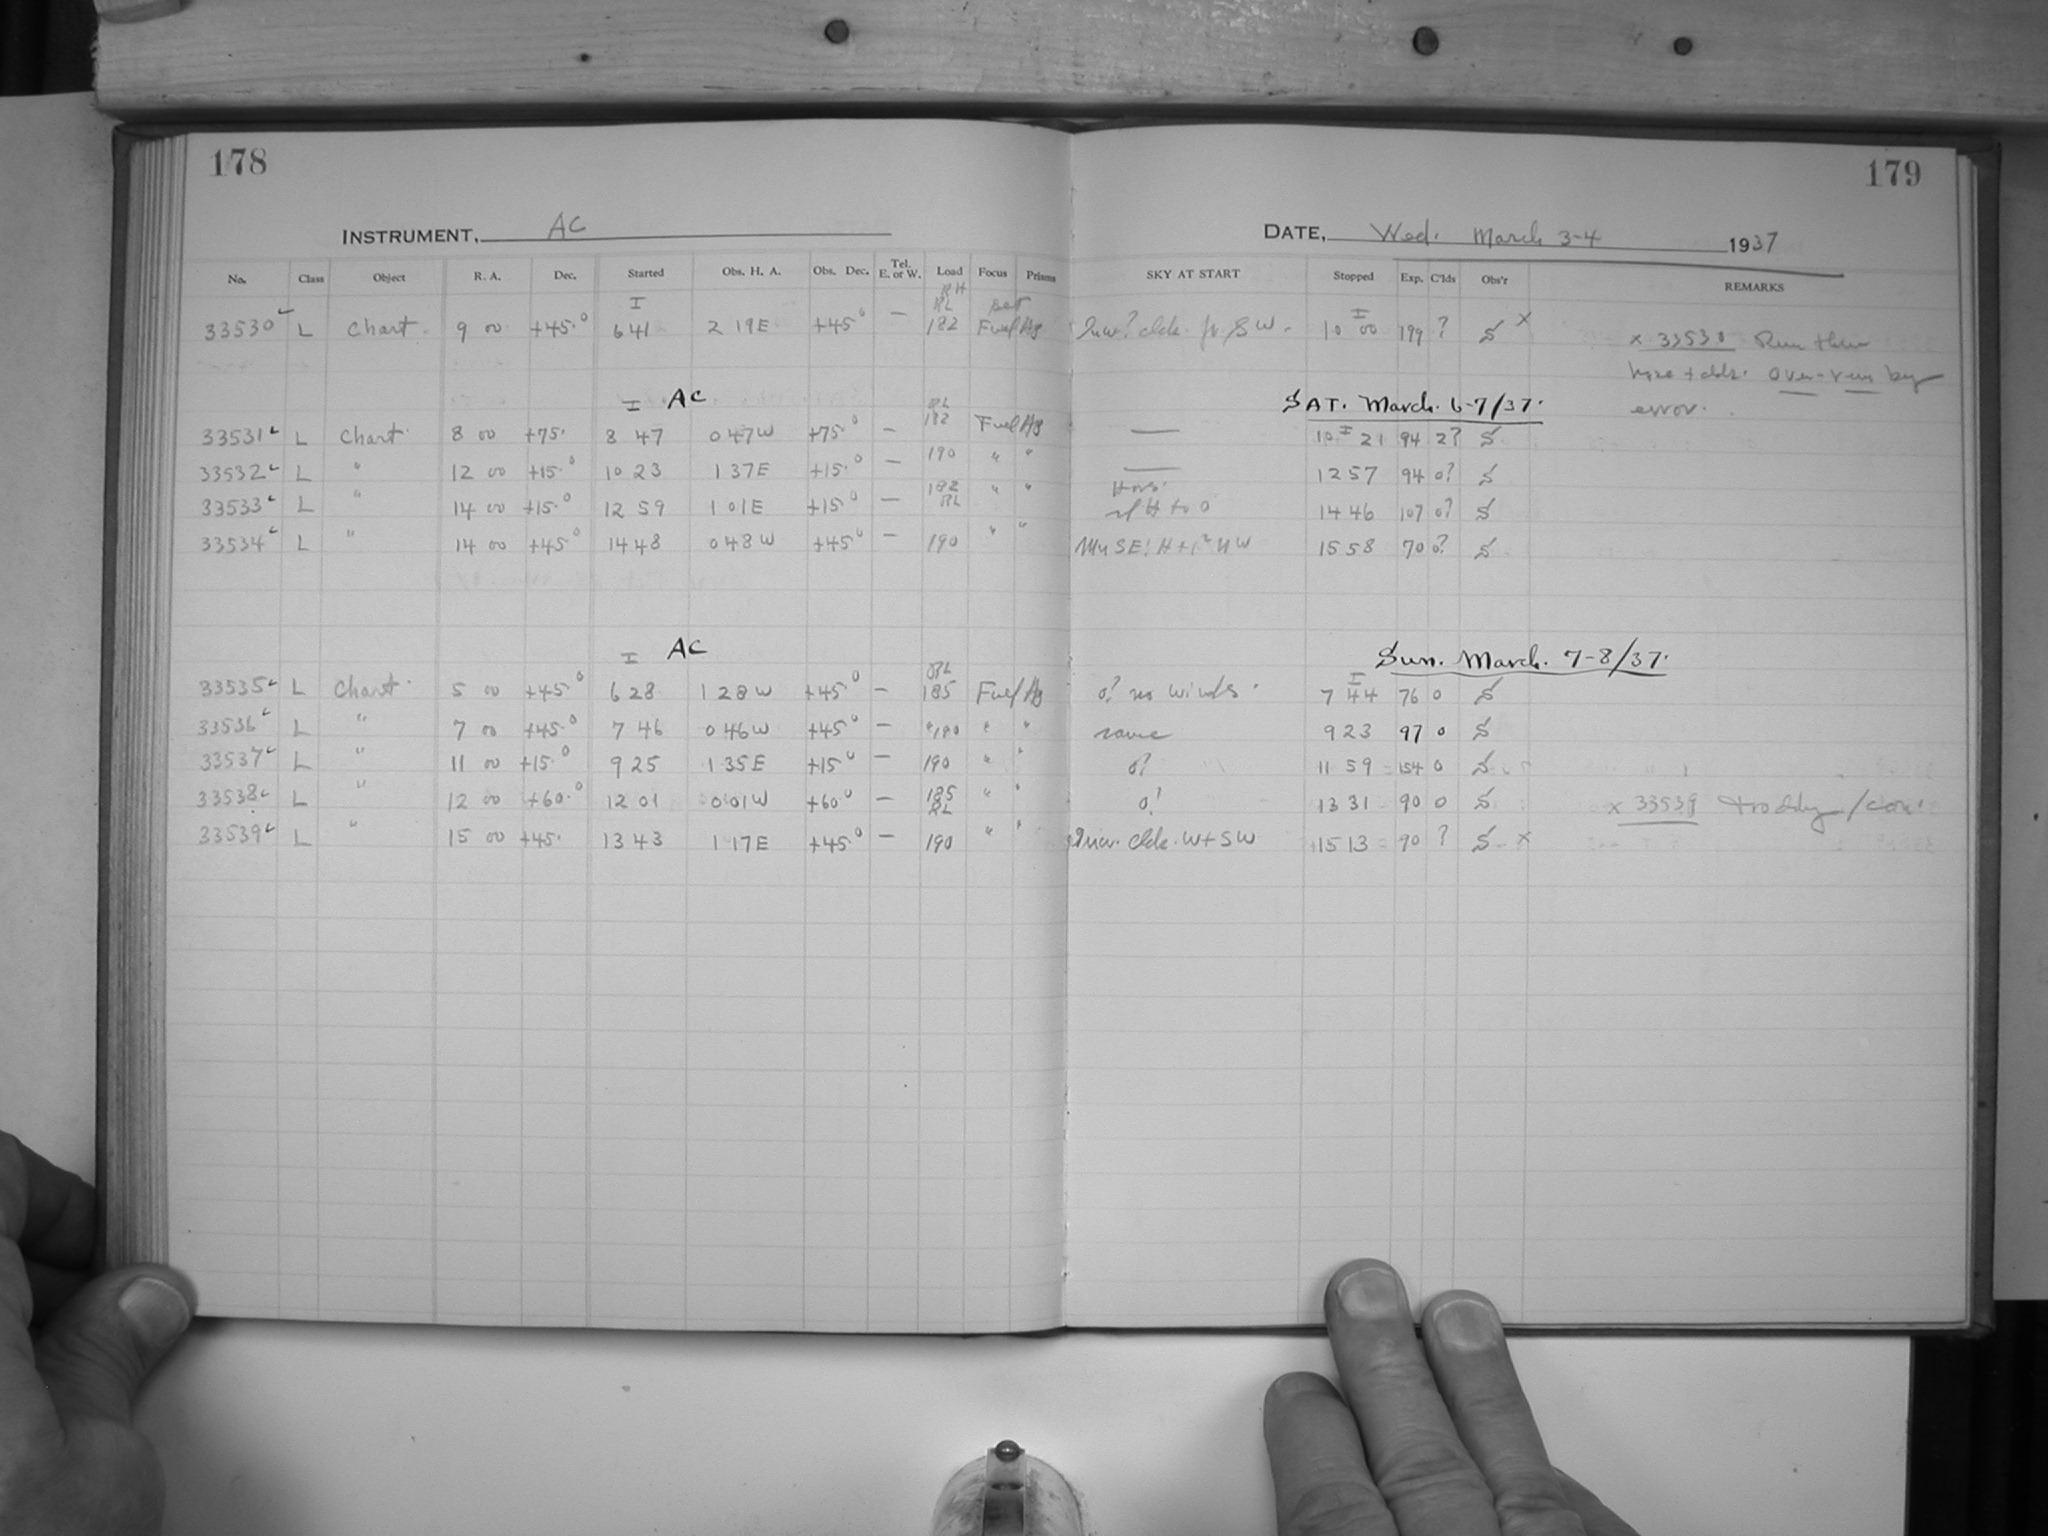 178
179
INSTRUMENT, AC
DATE, Wed. March 3-4 1937
No. Class Object R. A. Dec. Started Obs. H. A. Obs. Dec. Tel. E. or W. Load Focus Prisms SKY AT START Stopped Exp. C'lds Obs'r REMARKS
I RH RL set I
33530 L Chart. 9 00 +45.° 6 41 2 19E +45° — 182 SW. 10 00 199 ? S x
x 33530 Run thru
haze + clds. over-run by
error.
I AC RL SAT. March. 6-7/37.
33531 L Chart. 8 00 +75. 8 47 0 47W +75.° — 182 — 10 I 21 94 2? S
33532 L " 12 00 +15.° 10 23 1 37E +15.° — 190 " " — 12 57 94 0? S
33533 L " 14 00 +15.° 12 59 1 01E +15.° — 182 RL " " H to 0 14 46 107 0? S
33534 L " 14 00 +45° 14 48 0 48W +45° — 190 " " SE! 15 58 70 0? S
I AC RL Sun. March. 7-8/37. I
33535 L Chart. 5 00 +45.° 6 28 1 28W +45.° — 185 0? no winds. 7 44 76 0 S
33536 L " 7 00 +45.° 7 46 0 46W +45° — "190 " " same 9 23 97 0 S
33537 L " 11 00 +15.° 9 25 1 35E +15° — 190 " " 0? 11 59 154 0 S
33538 L " 12 00 +60.° 12 01 0 01W +60° — 185 RL " " 0? 13 31 90 0 S
x 33539
33539 L " 15 00 +45. 13 43 1 17E +45.° — 190 " " clds. W + SW 15 13 90 ? S x